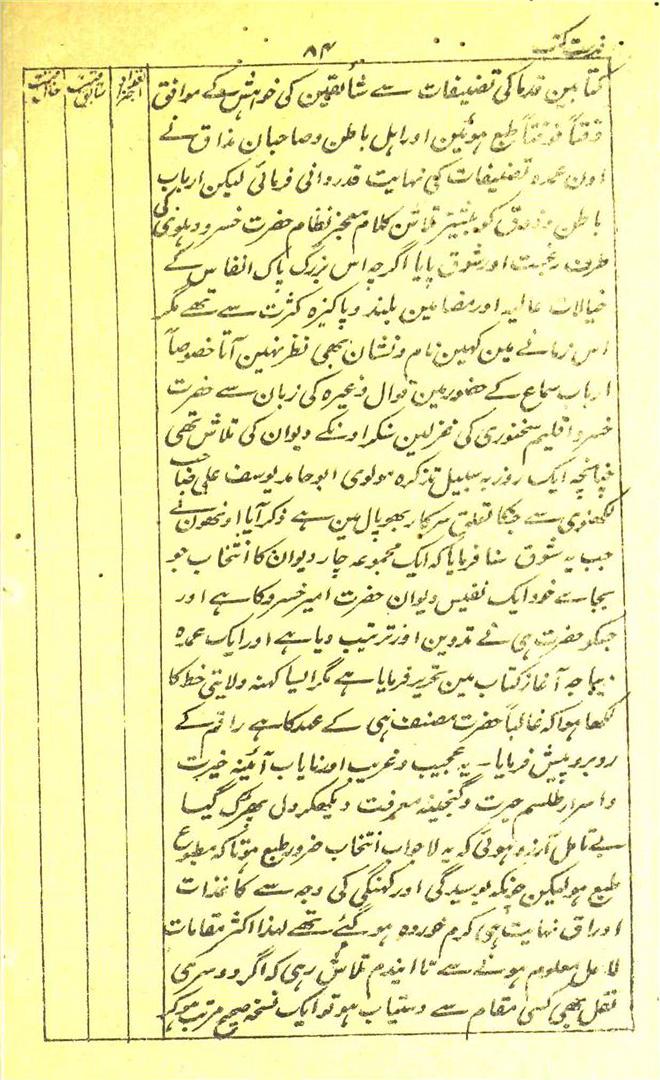 فہرست کتب
۸۴
نقد اجزا
سابق قیمت
حال قیمت
کتابین قدما کی تصنیفات سے شائقین کی خواہش کے موافق
وقتاً فوقتاً طبع ہوئین اور اہل باطن و صاحبان مذاق نے
اون عمدہ تصنیفات کی نہایت قدردانی فرمائی لیکن ارباب
باطن و ذوق کو بیشتر تلاش کلام معجز نظام حضرت خسرو دہلوی کی
طرف رغبت اور شوق پایا اگرچہ اس بزرگ پاک انفاس کے
خیالات عالیہ اور مضامین بلند و پاکیزہ کثرت سے تھے مگر
اس زمانے مین کہین نام و نشان بھی نظر نہین آتا خصوصاً
ارباب سماع کے حضور مین قوال وغیرہ کی زبان سے حضرت
خسرو اقلیم سخنوری کی غزلین سنکر اونکے دیوان کی تلاش تھی
چنانچہ ایک روز بہ سبیل تذکرہ مولوی ابو حامد یوسف علی صاحب
لکھنوی سے جنکا تعلق سرکار بھوپال مین ہے ذکر آیا اونھون نے
جب یہ شوق سنا فرمایا کہ ایک مجموعہ چار دیوان کا انتخاب جو
بجاے خود ایک نفیس دیوان حضرت امیر خسرو کا ہے اور
جسکو حضرت ہی نے تدوین اور ترتیب دیا ہے اور ایک عمدہ
دیباچہ آغاز کتاب مین تحریر فرمایا ہے مگر ایسا کہنہ ولایتی خط کا
لکھا ہوا کہ غالباً حضرت مصنف ہی کے عہد کا ہے راقم کے
روبرو پیش فرمایا ۔ یہ عجیب و غریب اور نایاب آئینہ حیرت
و اسرار طلسم حیرت و گنجینہ معرفت دیکھکر دل پھڑک گیا
بے تامل آرزو ہوئی کہ یہ لاجواب انتخاب ضرور طبع ہوتا کہ مطبوع
طبع ہو لیکن چونکہ بوسیدگی اور کہنگی کی وجہ سے کاغذات
اوراق نہایت ہی کرم خوردہ ہو گئے تھے لہذا اکثر مقامات
لاحل معلوم ہونے سے تا ایندم تلاش رہی کہ اگر دوسری
نقل بھی کسی مقام سے دستیاب ہو تو ایک نسخہ صحیح مرتب ہوکر